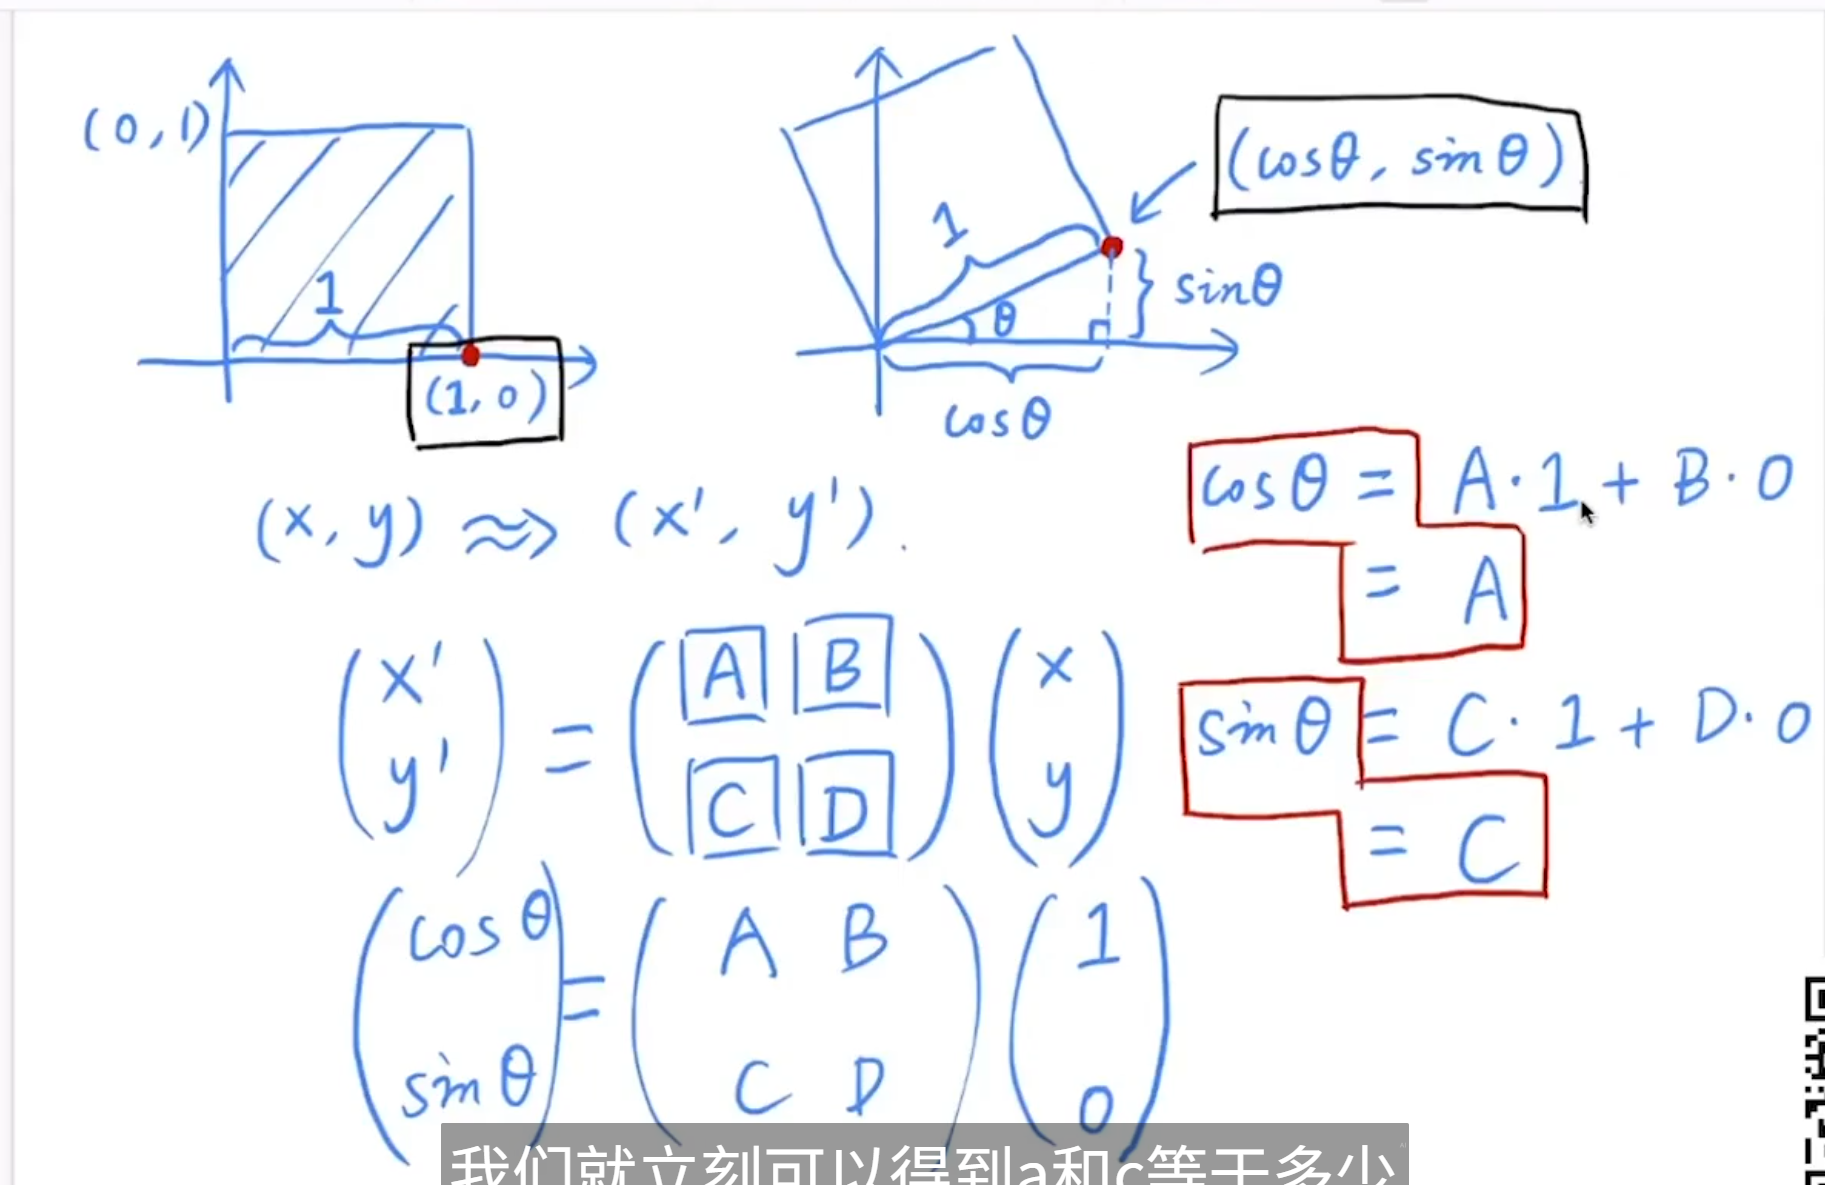 (0, 1)
1
(1, 0)
1
θ
cosθ
sinθ
(cosθ, sinθ)
(x, y) ⇝ (x', y').
(x' y') = (A B C D) (x y)
(cosθ sinθ) = (A B C D) (1 0)
cosθ = A·1 + B·0
= A
sinθ = C·1 + D·0
= C
我们就立刻可以得到a和c等于多少